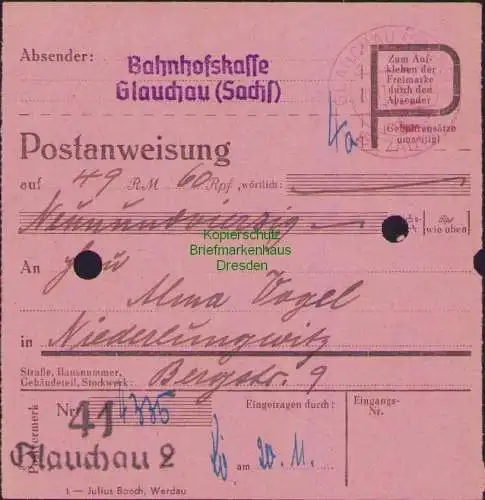 Absender:
Bahnhofskasse
Glauchau (Sachs)
Zum Auf-
kleben der
Freimarke
durch den
Absender
(Gebührensätze
umseitig)
P
4a
Postanweisung
auf 49 RM 60 Rpf, wörtlich:
Neunundvierzig Rpf
wie oben
Kopierschutz
Briefmarkenhaus
Dresden
An Frau
Alma Vogel
in Niederlungwitz
Straße, Hausnummer,
Gebäudeteil, Stockwerk: Bergstr. 9
Postvermerk
Nr. 41 Eingetragen durch: Eingangs-
Nr.
Glauchau 2
am 20. 11.
I. — Julius Bosch, Werdau